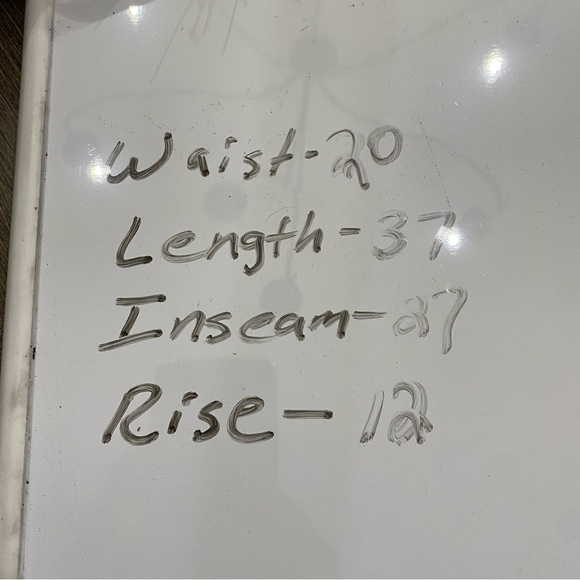 Waist-20
Length-37
Inseam-27
Rise-12